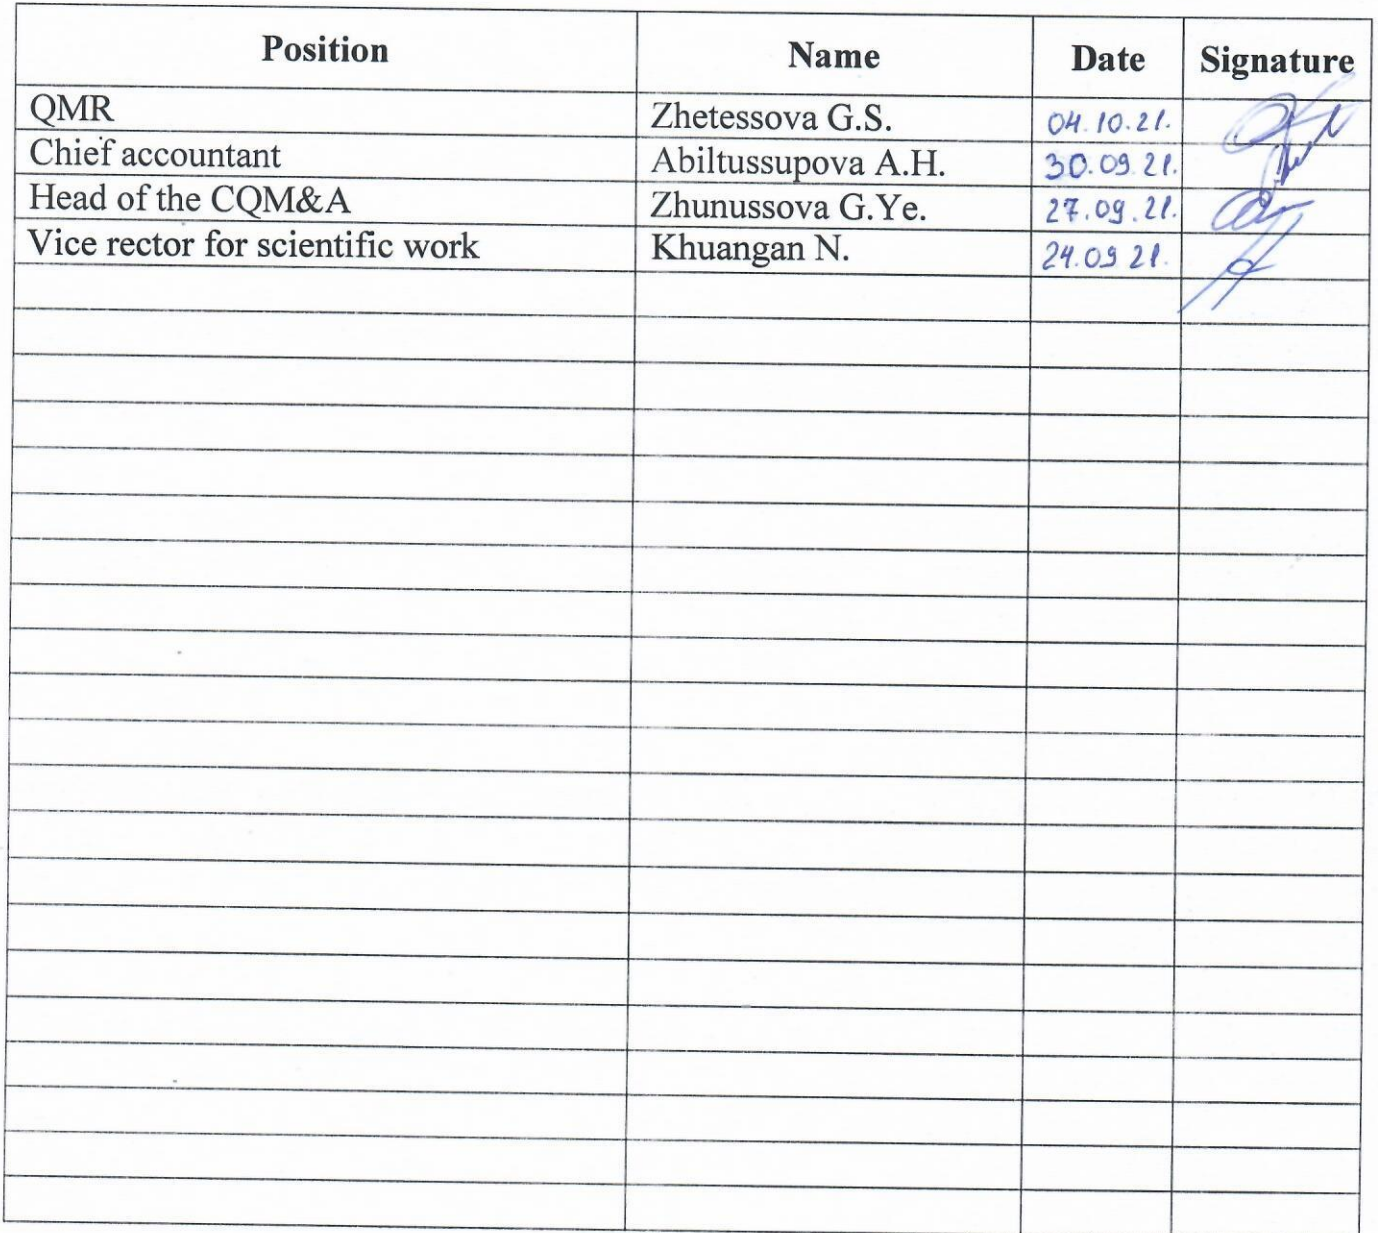 Position Name Date Signature
QMR Zhetessova G.S. 04.10.21.
Chief accountant Abiltussupova A.H. 30.09.21.
Head of the CQM&A Zhunussova G.Ye. 27.09.21.
Vice rector for scientific work Khuangan N. 24.09 21.